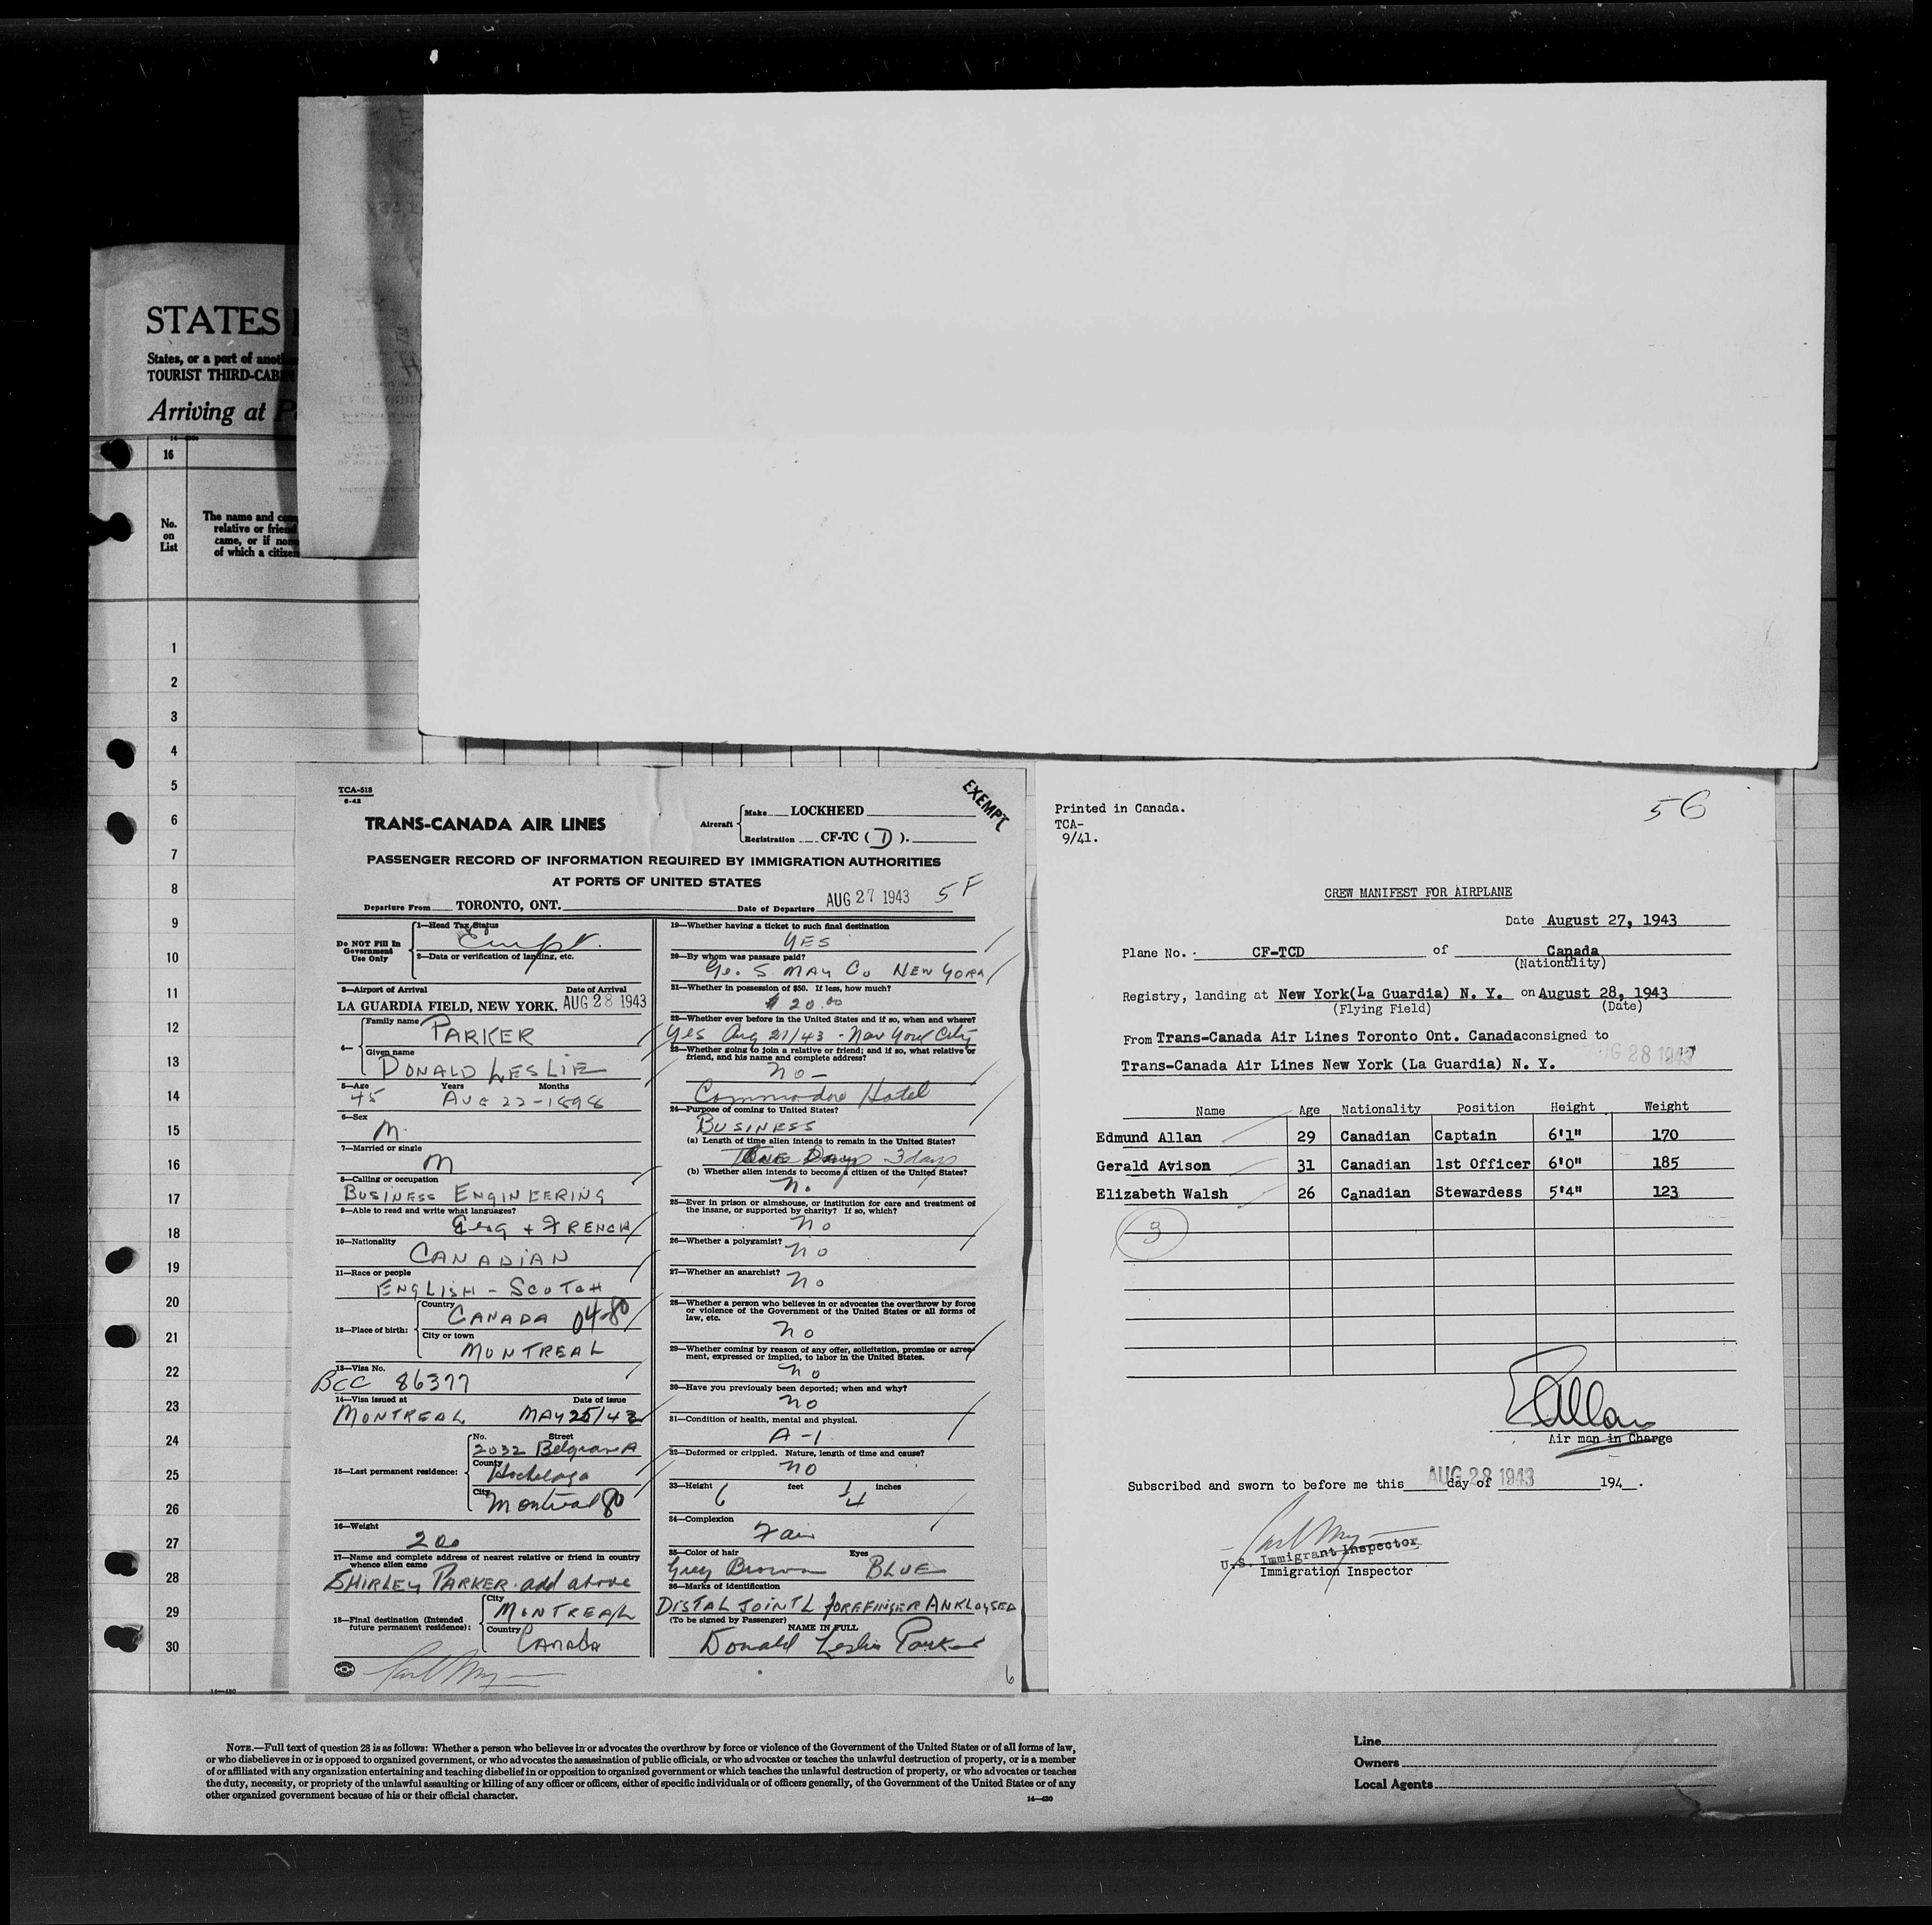 STATES
States, or a port of anoth
TOURIST THIRD-CABIN
Arriving at P
16
No.
on
List
The name and com
relative or friend
came, or if none
of which a citizen
1
2
3
4
5
6
7
8
9
10
11
12
13
14
15
16
17
18
19
20
21
22
23
24
25
26
27
28
29
30
TCA-518
6-42
EXEMPT
TRANS-CANADA AIR LINES
Aircraft
Make LOCKHEED
Registration CF-TC ( D ).
PASSENGER RECORD OF INFORMATION REQUIRED BY IMMIGRATION AUTHORITIES
AT PORTS OF UNITED STATES
Departure From TORONTO, ONT. Date of Departure AUG 27 1943 5F
Do NOT Fill In
Government
Use Only
1—Head Tax Status
2—Data or verification of landing, etc.
3—Airport of Arrival Date of Arrival
LA GUARDIA FIELD, NEW YORK. AUG 28 1943
4— Family name PARKER
Given name
DONALD LESLIE
5—Age Years Months
45 AUG 22-1898
6—Sex
M.
7—Married or single
M
8—Calling or occupation
BUSINESS ENGINEERING
9—Able to read and write what languages?
Eng + FRENCH
10—Nationality
CANADIAN
11—Race or people
ENGLISH - SCOTCH
12—Place of birth:
Country CANADA 04-80
City or town
MONTREAL
13—Visa No.
BCC 86377
14—Visa issued at Date of issue
MONTREAL MAY 25/43
15—Last permanent residence:
No. Street
2032 Belgrave A
County
Hochelaga
City
Montreal 80
16—Weight
200
17—Name and complete address of nearest relative or friend in country
whence alien came
SHIRLEY PARKER add above
18—Final destination (Intended
future permanent residence):
City
MONTREAL
Country
CANADA
19—Whether having a ticket to such final destination
YES
20—By whom was passage paid?
Geo. S MAY Co NEW YORK
21—Whether in possession of $50. If less, how much?
$ 20.00
22—Whether ever before in the United States and if so, when and where?
Yes Aug 21/43 - New York City
23—Whether going to join a relative or friend; and if so, what relative or
friend, and his name and complete address?
no —
Commodore Hotel
24—Purpose of coming to United States?
BUSINESS
(a) Length of time alien intends to remain in the United States?
3 days
(b) Whether alien intends to become a citizen of the United States?
no
25—Ever in prison or almshouse, or institution for care and treatment of
the insane, or supported by charity? If so, which?
no
26—Whether a polygamist? no
27—Whether an anarchist? no
28—Whether a person who believes in or advocates the overthrow by force
or violence of the Government of the United States or all forms of
law, etc.
no
29—Whether coming by reason of any offer, solicitation, promise or agree-
ment, expressed or implied, to labor in the United States.
no
30—Have you previously been deported; when and why?
no
31—Condition of health, mental and physical.
A-1
32—Deformed or crippled. Nature, length of time and cause?
NO
33—Height feet inches
6 1/4
34—Complexion
Fair
35—Color of hair Eyes
Grey Brown BLUE
36—Marks of identification
DISTAL JOINT L FOREFINGER ANKLOYSED
(To be signed by Passenger) NAME IN FULL
Donald Leslie Parker
6
Printed in Canada.
TCA-
9/41.
56
CREW MANIFEST FOR AIRPLANE
Date August 27, 1943
Plane No. CF-TCD of Canada
(Nationality)
Registry, landing at New York(La Guardia) N. Y. on August 28, 1943
(Flying Field) (Date)
From Trans-Canada Air Lines Toronto Ont. Canada consigned to
AUG 28 1943
Trans-Canada Air Lines New York (La Guardia) N. Y.
Name Age Nationality Position Height Weight
Edmund Allan 29 Canadian Captain 6'1" 170
Gerald Avison 31 Canadian 1st Officer 6'0" 185
Elizabeth Walsh 26 Canadian Stewardess 5'4" 123
3
E Allan
Air man in Charge
Subscribed and sworn to before me this day of 194 .
AUG 28 1943
U.S. Immigrant Inspector
Immigration Inspector
NOTE.—Full text of question 28 is as follows: Whether a person who believes in or advocates the overthrow by force or violence of the Government of the United States or of all forms of law,
or who disbelieves in or is opposed to organized government, or who advocates the assassination of public officials, or who advocates or teaches the unlawful destruction of property, or is a member
of or affiliated with any organization entertaining and teaching disbelief in or opposition to organized government or which teaches the unlawful destruction of property, or who advocates or teaches
the duty, necessity, or propriety of the unlawful assaulting or killing of any officer or officers, either of specific individuals or of officers generally, of the Government of the United States or of any
other organized government because of his or their official character.
14—430
Line
Owners
Local Agents